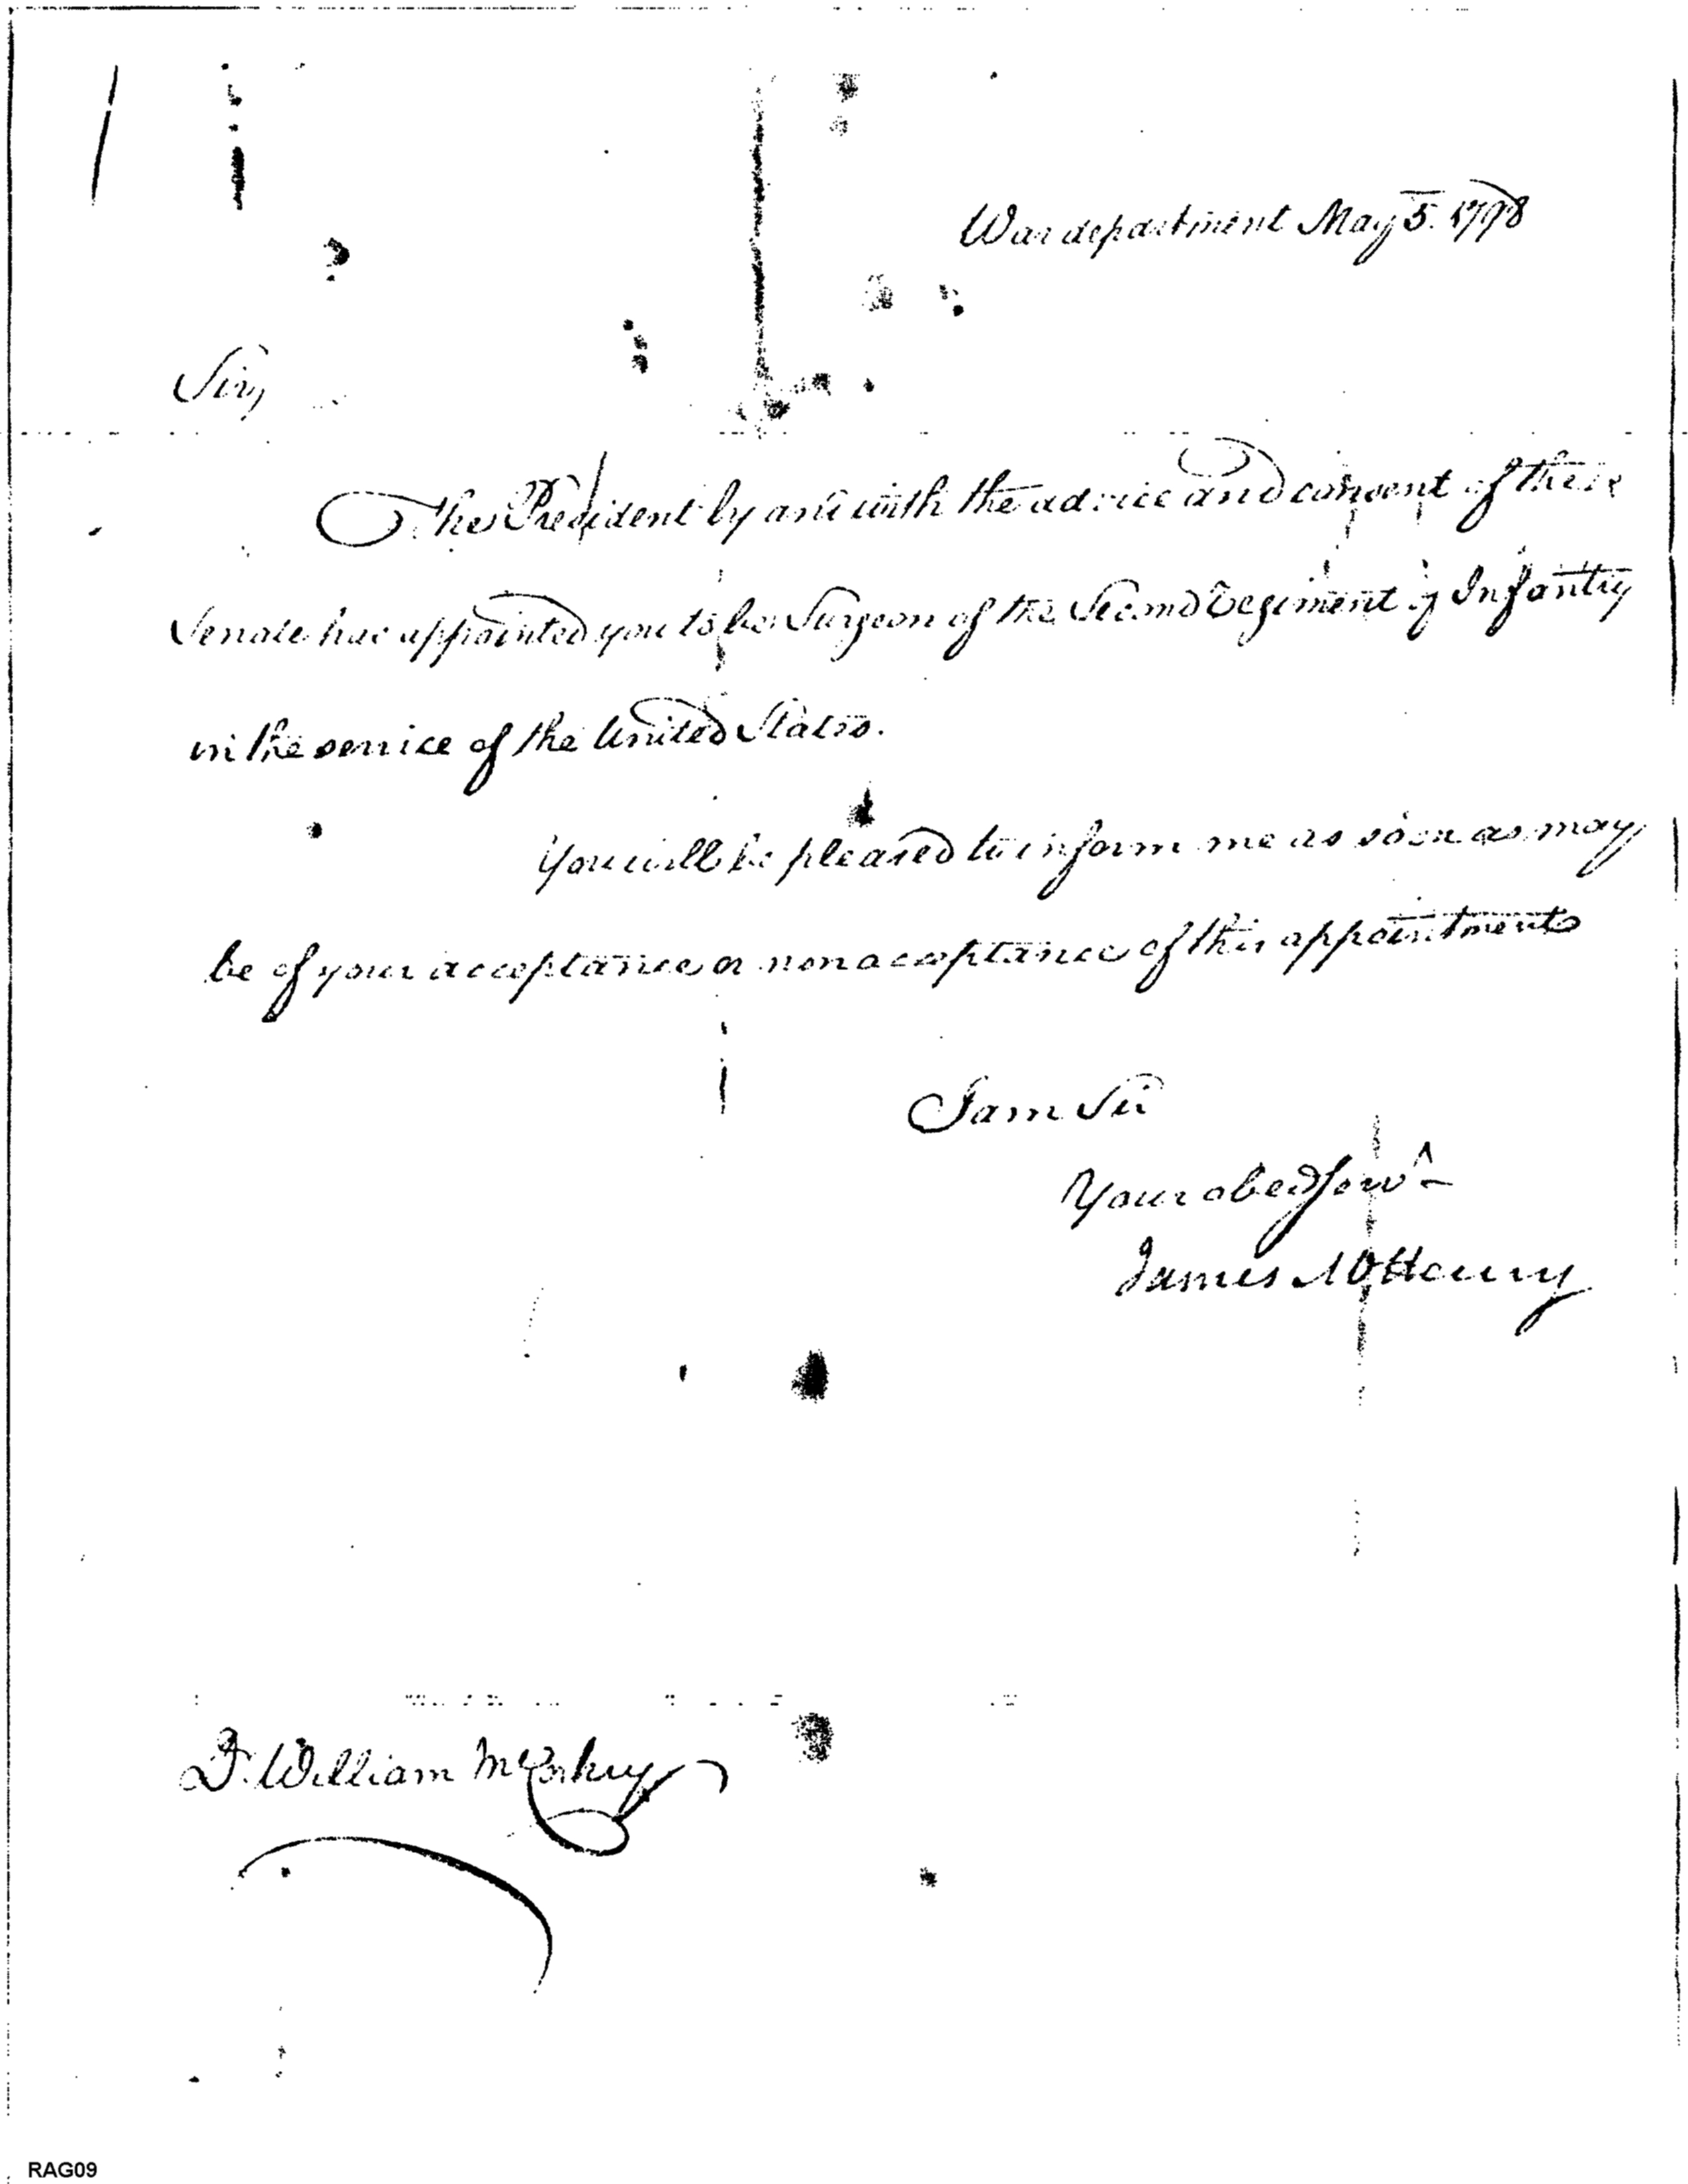 War department May 5. 1798
Sir,
The President by and with the advice and consent of the
Senate has appointed you to be Surgeon of the Second Regiment of Infantry
in the service of the United States.
You will be pleased to inform me as soon as may
be of your acceptance or non acceptance of this appointment
I am Sir
Your obed serv^t
James McHenry
D^r. William McCoskry
RAG09